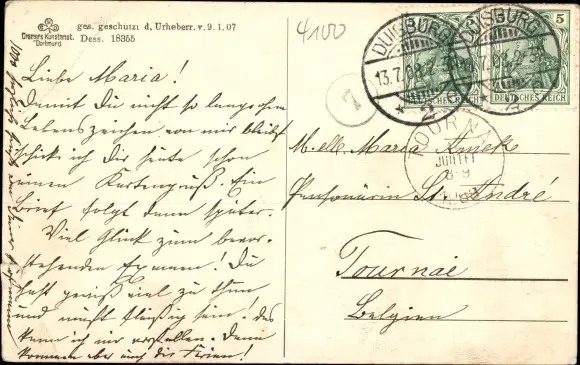 Cramers Kunstanst.
Dortmund
ges. geschützt d. Urheberr. v. 9.1.07
Dess. 18355
4/100
7
DUISBURG
13.7.08
* 2 g
DUISBURG
5
DEUTSCHES REICH
DEUTSCHES REICH
TOURNAI
JUILLET
8-9
1908
Liebe Maria!
Damit Du nicht so lang ohne
Lebenszeichen von mir bleibst
schicke ich Dir heute schon
einen Kartengruß. Ein
Brief folgt dann später.
Viel Glück zum bevor-
stehenden Examen! Du
hast gewiß viel zu thun
und mußt fleißig sein. das
kann ich mir vorstellen. Dann
kommen aber auch die Ferien!
M.elle Maria
Pensionärin St. André
Tournai
Belgien